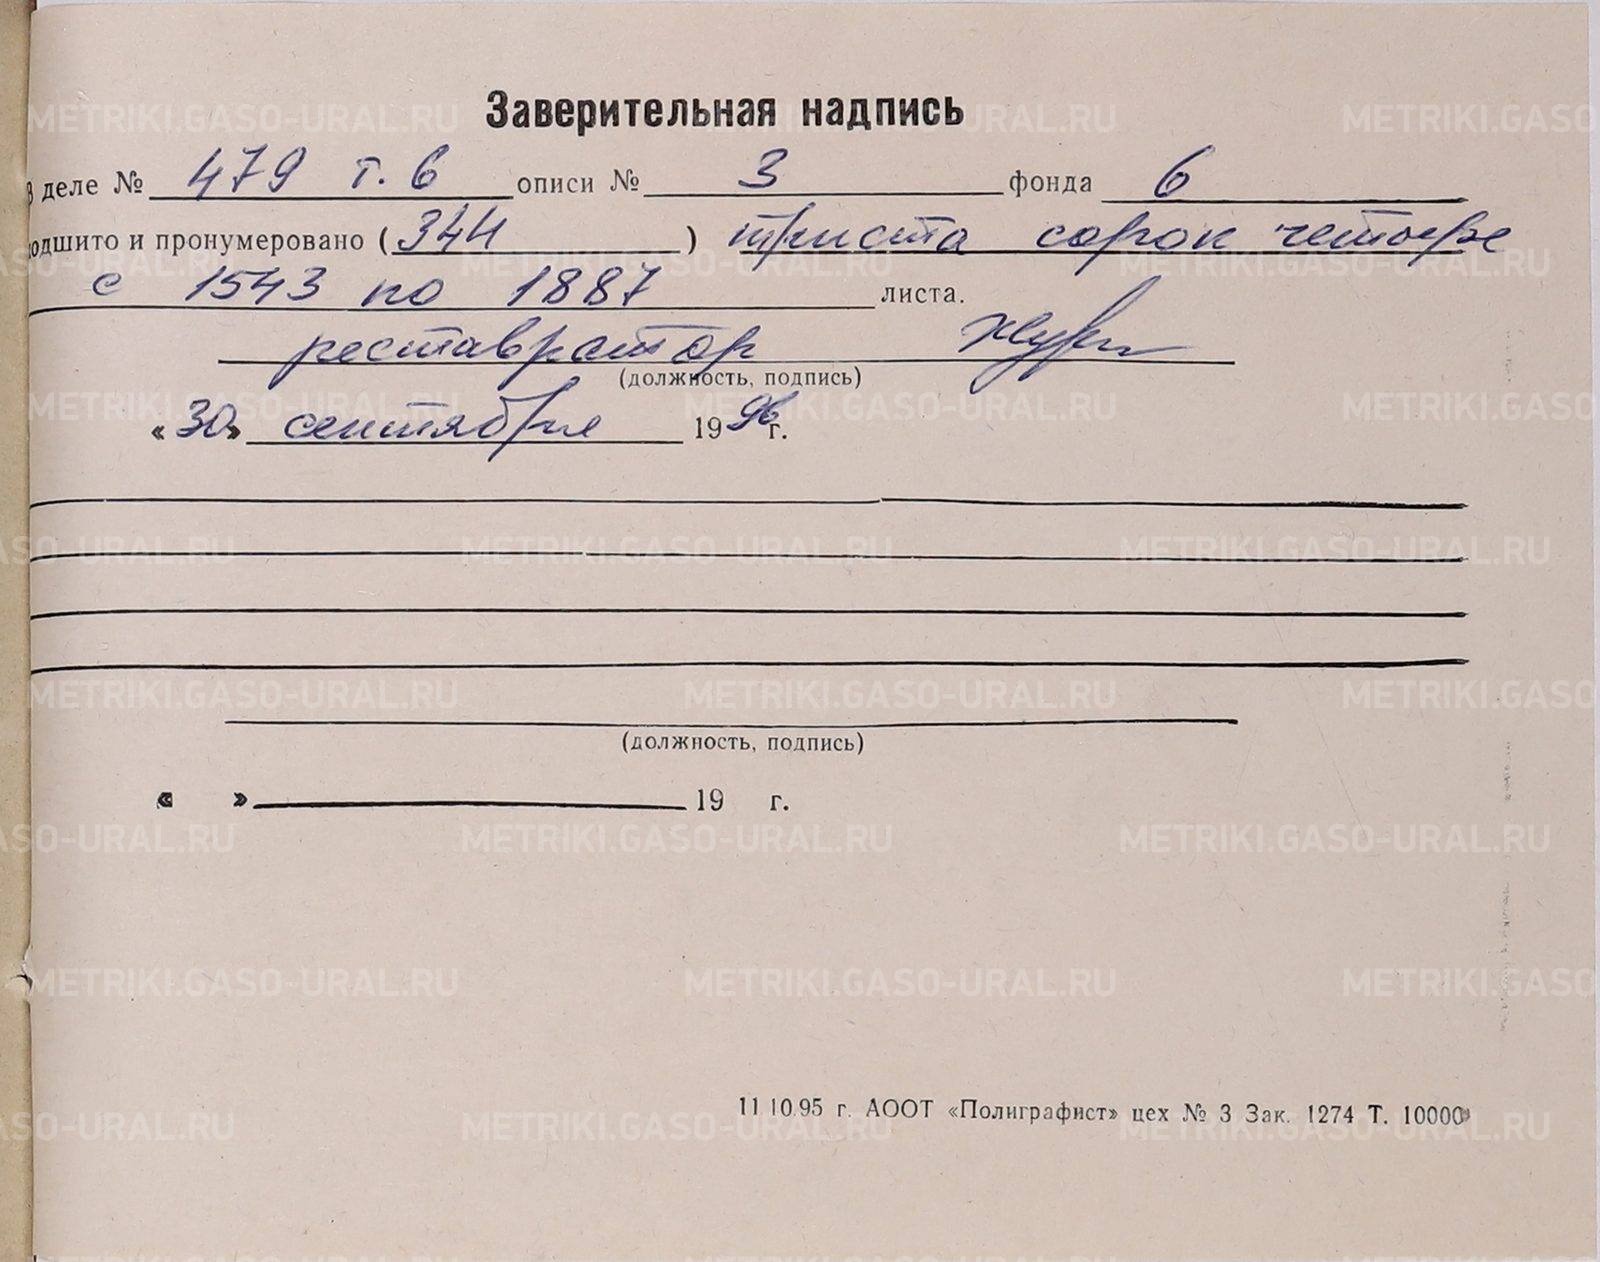 Заверительная надпись
В деле № 479 т. 6 описи № 3 фонда 6
подшито и пронумеровано (344) триста сорок четыре
с 1543 по 1887 листа.
реставратор
(должность, подпись)
«30» сентября 1996 г.
(должность, подпись)
« » 19 г.
11.10.95 г. АООТ «Полиграфист» цех № 3 Зак. 1274 Т. 10000
METRIKI.GASO-URAL.RU